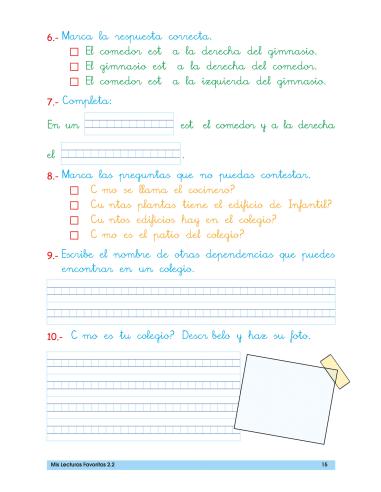 6.- Marca la respuesta correcta.
El comedor est a la derecha del gimnasio.
El gimnasio est a la derecha del comedor.
El comedor est a la izquierda del gimnasio.
7.- Completa:
En un est el comedor y a la derecha
el .
8.- Marca las preguntas que no puedas contestar.
C mo se llama el cocinero?
Cu ntas plantas tiene el edificio de Infantil?
Cu ntos edificios hay en el colegio?
C mo es el patio del colegio?
9.- Escribe el nombre de otras dependencias que puedes
encontrar en un colegio.
10.- C mo es tu colegio? Descr belo y haz su foto.
Mis Lecturas Favoritas 2.2 15